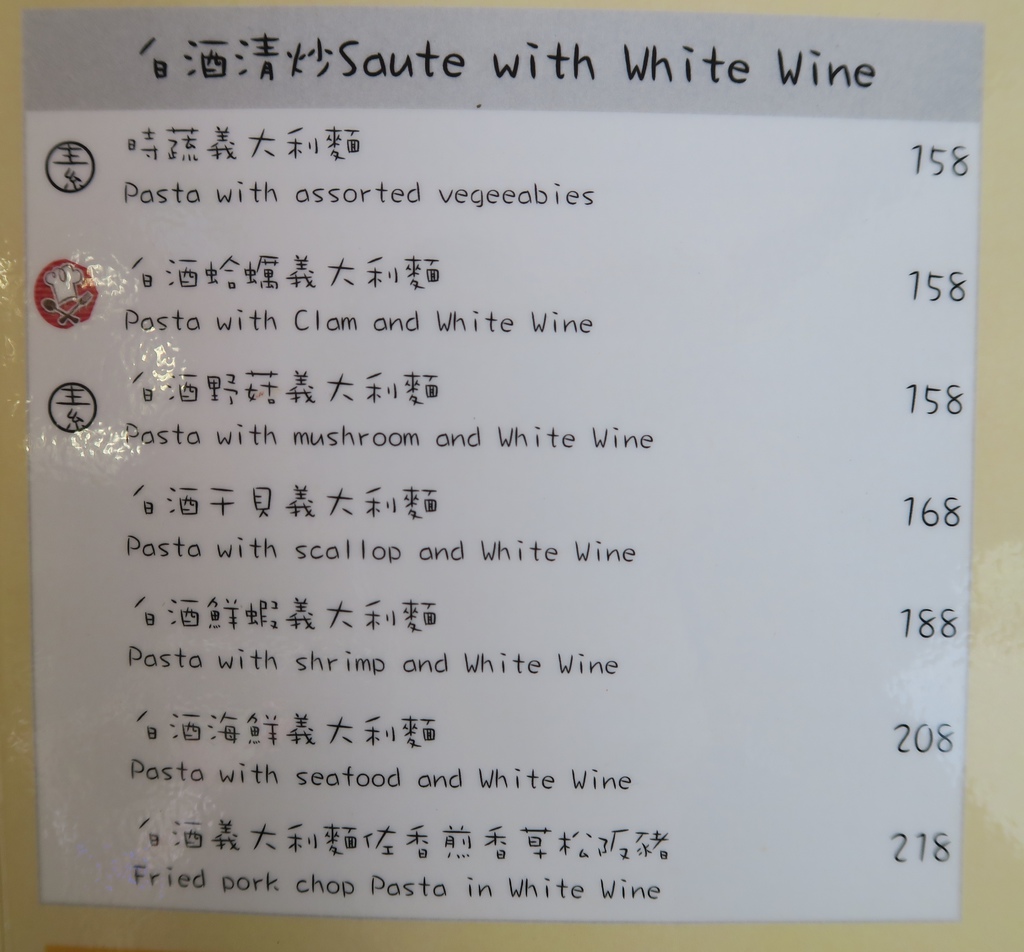 白酒清炒Saute with White Wine
素 時蔬義大利麵 158
Pasta with assorted vegeeabies
白酒蛤蠣義大利麵 158
Pasta with Clam and White Wine
素 白酒野菇義大利麵 158
Pasta with mushroom and White Wine
白酒干貝義大利麵 168
Pasta with scallop and White Wine
白酒鮮蝦義大利麵 188
Pasta with shrimp and White Wine
白酒海鮮義大利麵 208
Pasta with seafood and White Wine
白酒義大利麵佐香煎香草松阪豬 218
Fried pork chop Pasta in White Wine